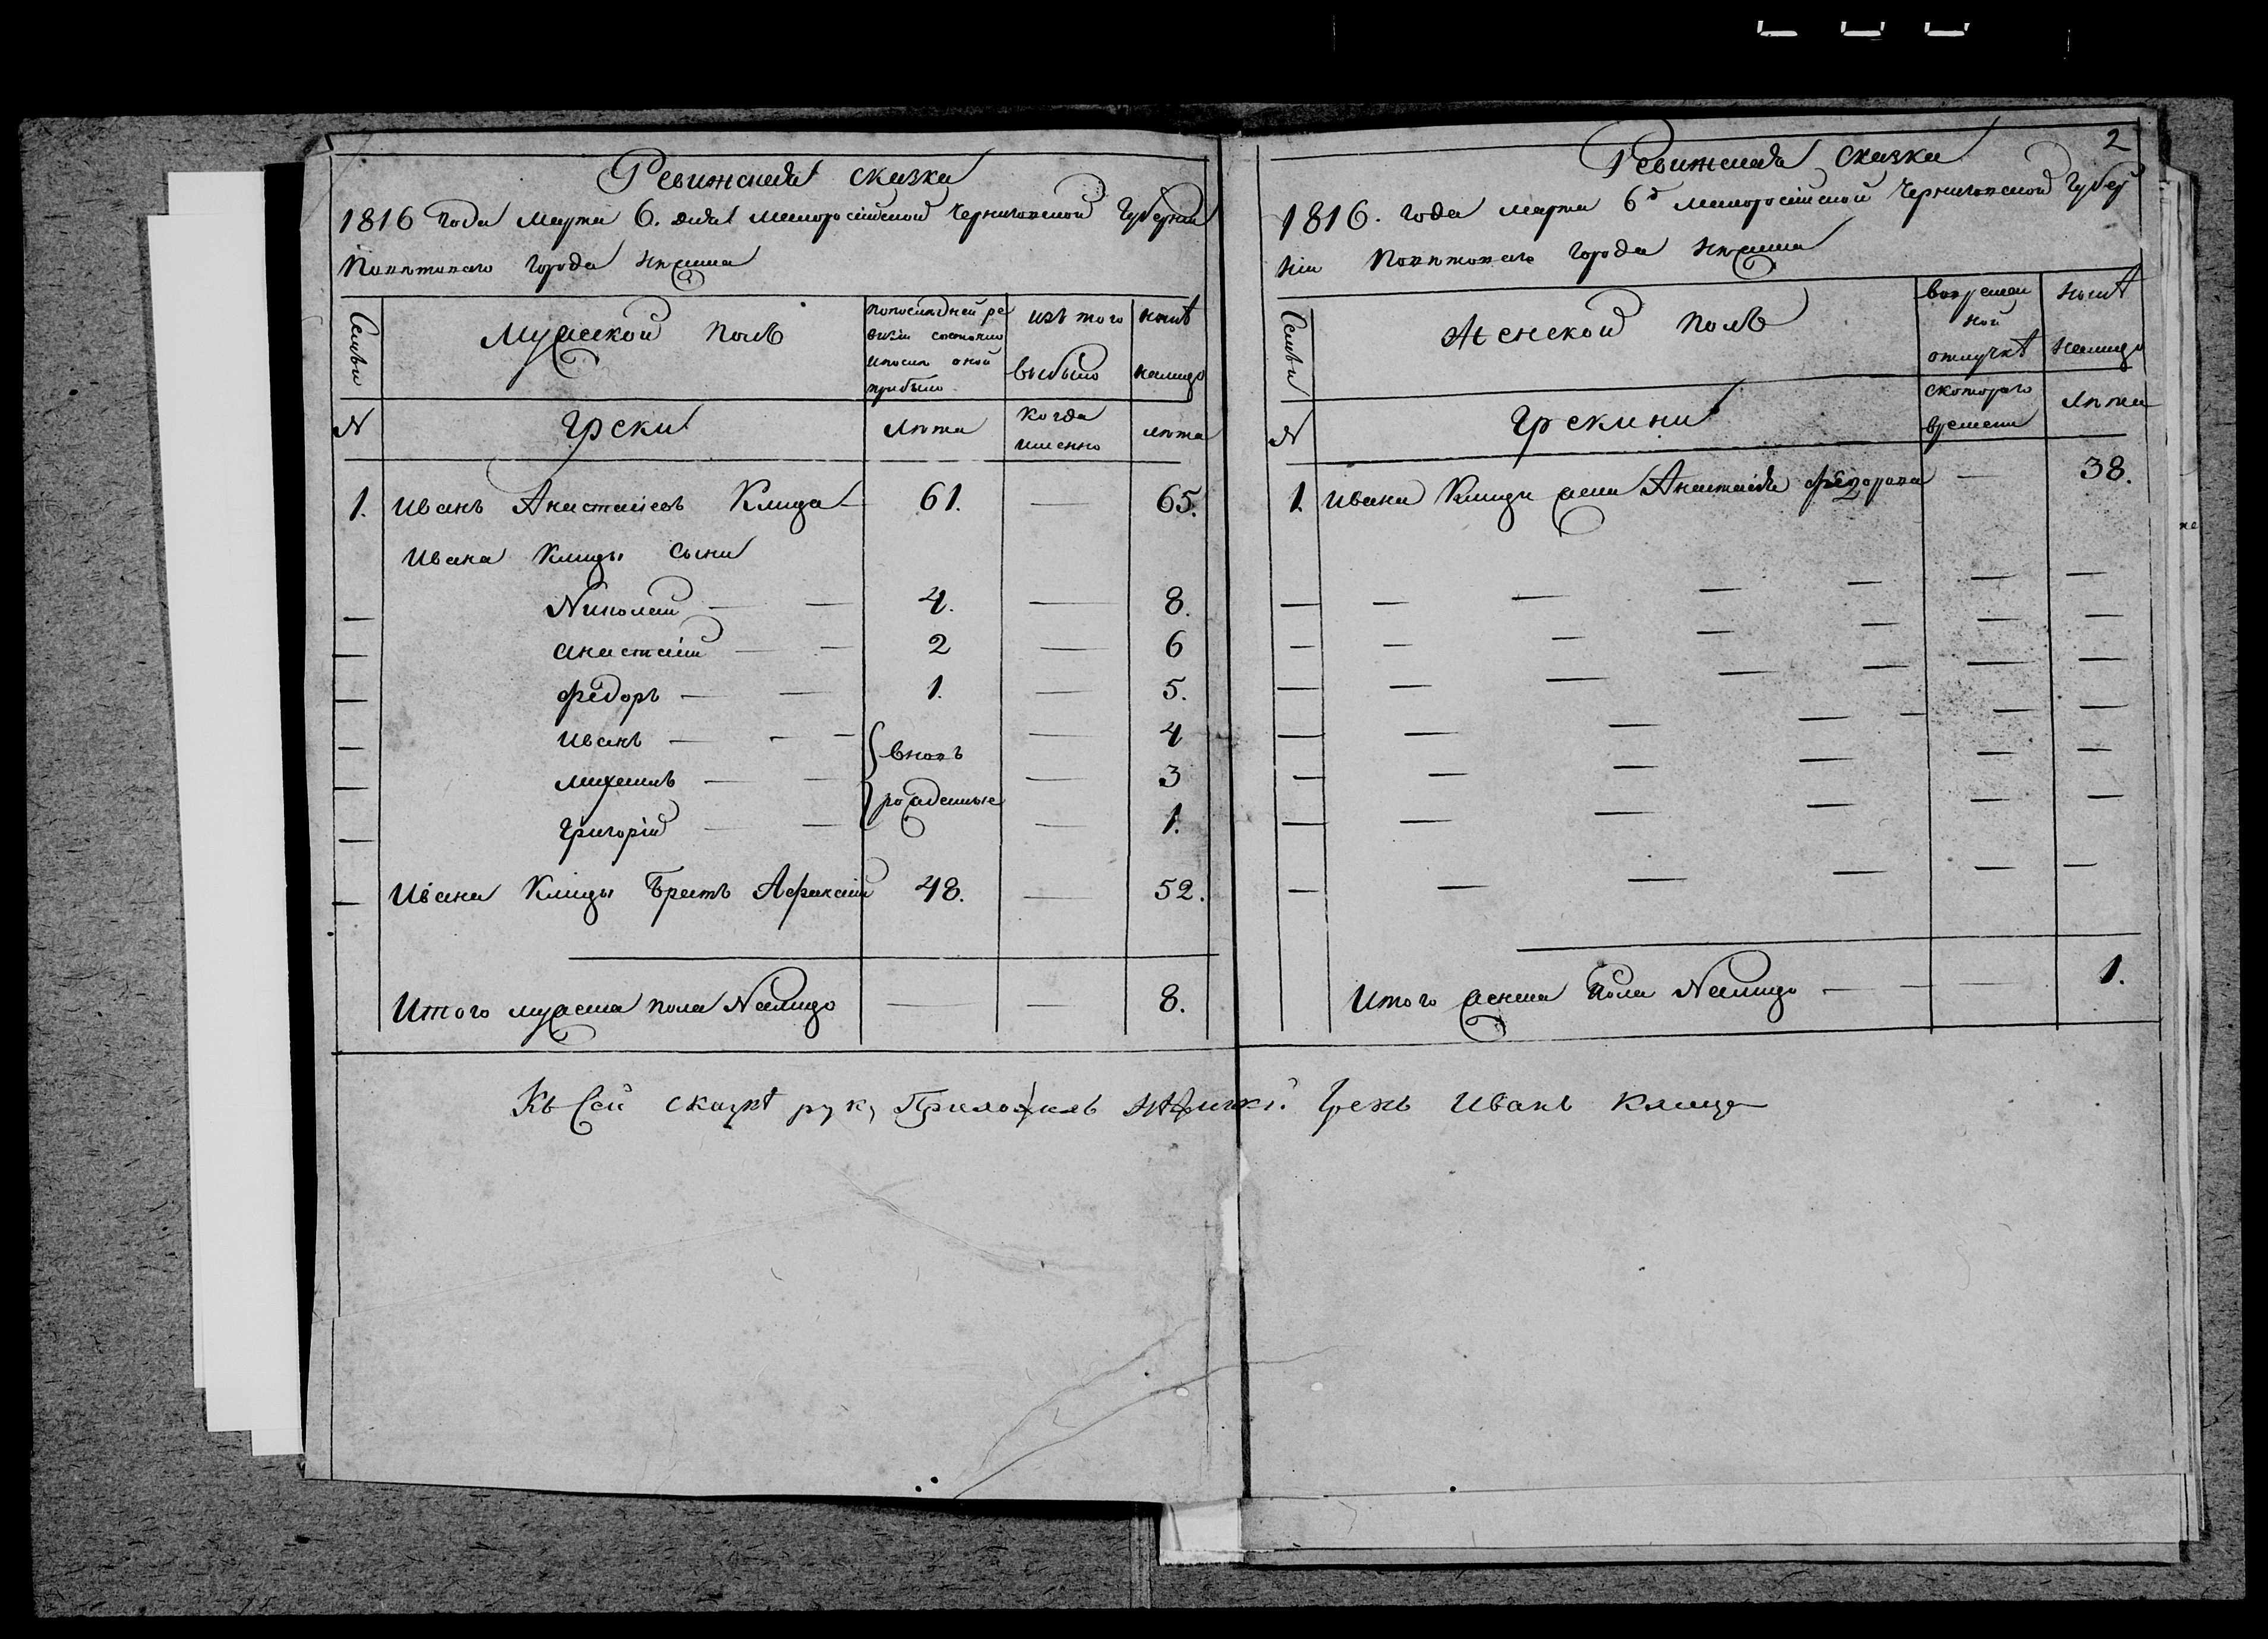 Ревижская сказка
1816 года марта 6. дня Малоросійской Черниговской Губерніи
Повѣтоваго города Нѣжина
Семьи
Мужеской полъ
попоследней ре
визіи состояло
ипосле оной
прибыло
изъ того
выбыло
ныне
налицо
N
Греки
лѣта
когда
имянно
лѣта
1. Иванъ Анастасіевъ Клица — 61. — 65.
Ивана Клицы сыны
— Николай — — 4. — 8.
— Анастасій — — 2 — 6
— Федоръ — — 1. — 5.
— Иванъ — - — вновь — 4
— Михаилъ — — — 3
рожденные
— Григорій — — — 1.
— Ивана Клицы братъ Афанасій 48. — 52.
Итого мужеска пола налицо — — 8.
2
Ревижская сказка
1816. года марта 6д Малоросійской Черниговской Губер
ніи Повѣтоваго города Нѣжина
Семьи
Женской полъ
вовремен
ной
отлучкѣ
нынѣ
налицо
N
Грекини
скотораго
времени
лѣта
1. Ивана Клицы жена Анастасія Федорова — 38.
Итого женска пола налицо — — — 1.
Къ сей сказкѣ руку приложилъ нѣжинскі. грекъ Иванъ Клица